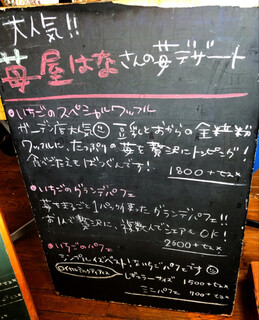 大人気!!
苺屋はなさんの苺デザート
•いちごのスペシャルワッフル
ガーデン店大人気 豆乳とおからの全粒粉
ワッフルに、たっぷりの苺を贅沢にトッピング!
食べごたえばっちりです!
1800+tax
•いちごのグランデパフェ
苺まるごと1パック使ったグランデパフェ!!
お1人で贅沢に、複数人でシェアもOK!
2600+tax
•いちごのパフェ
シンプルイズベスト!ないちごパフェです
レギュラーサイズ 1500+tax
ミニパフェ 900+tax